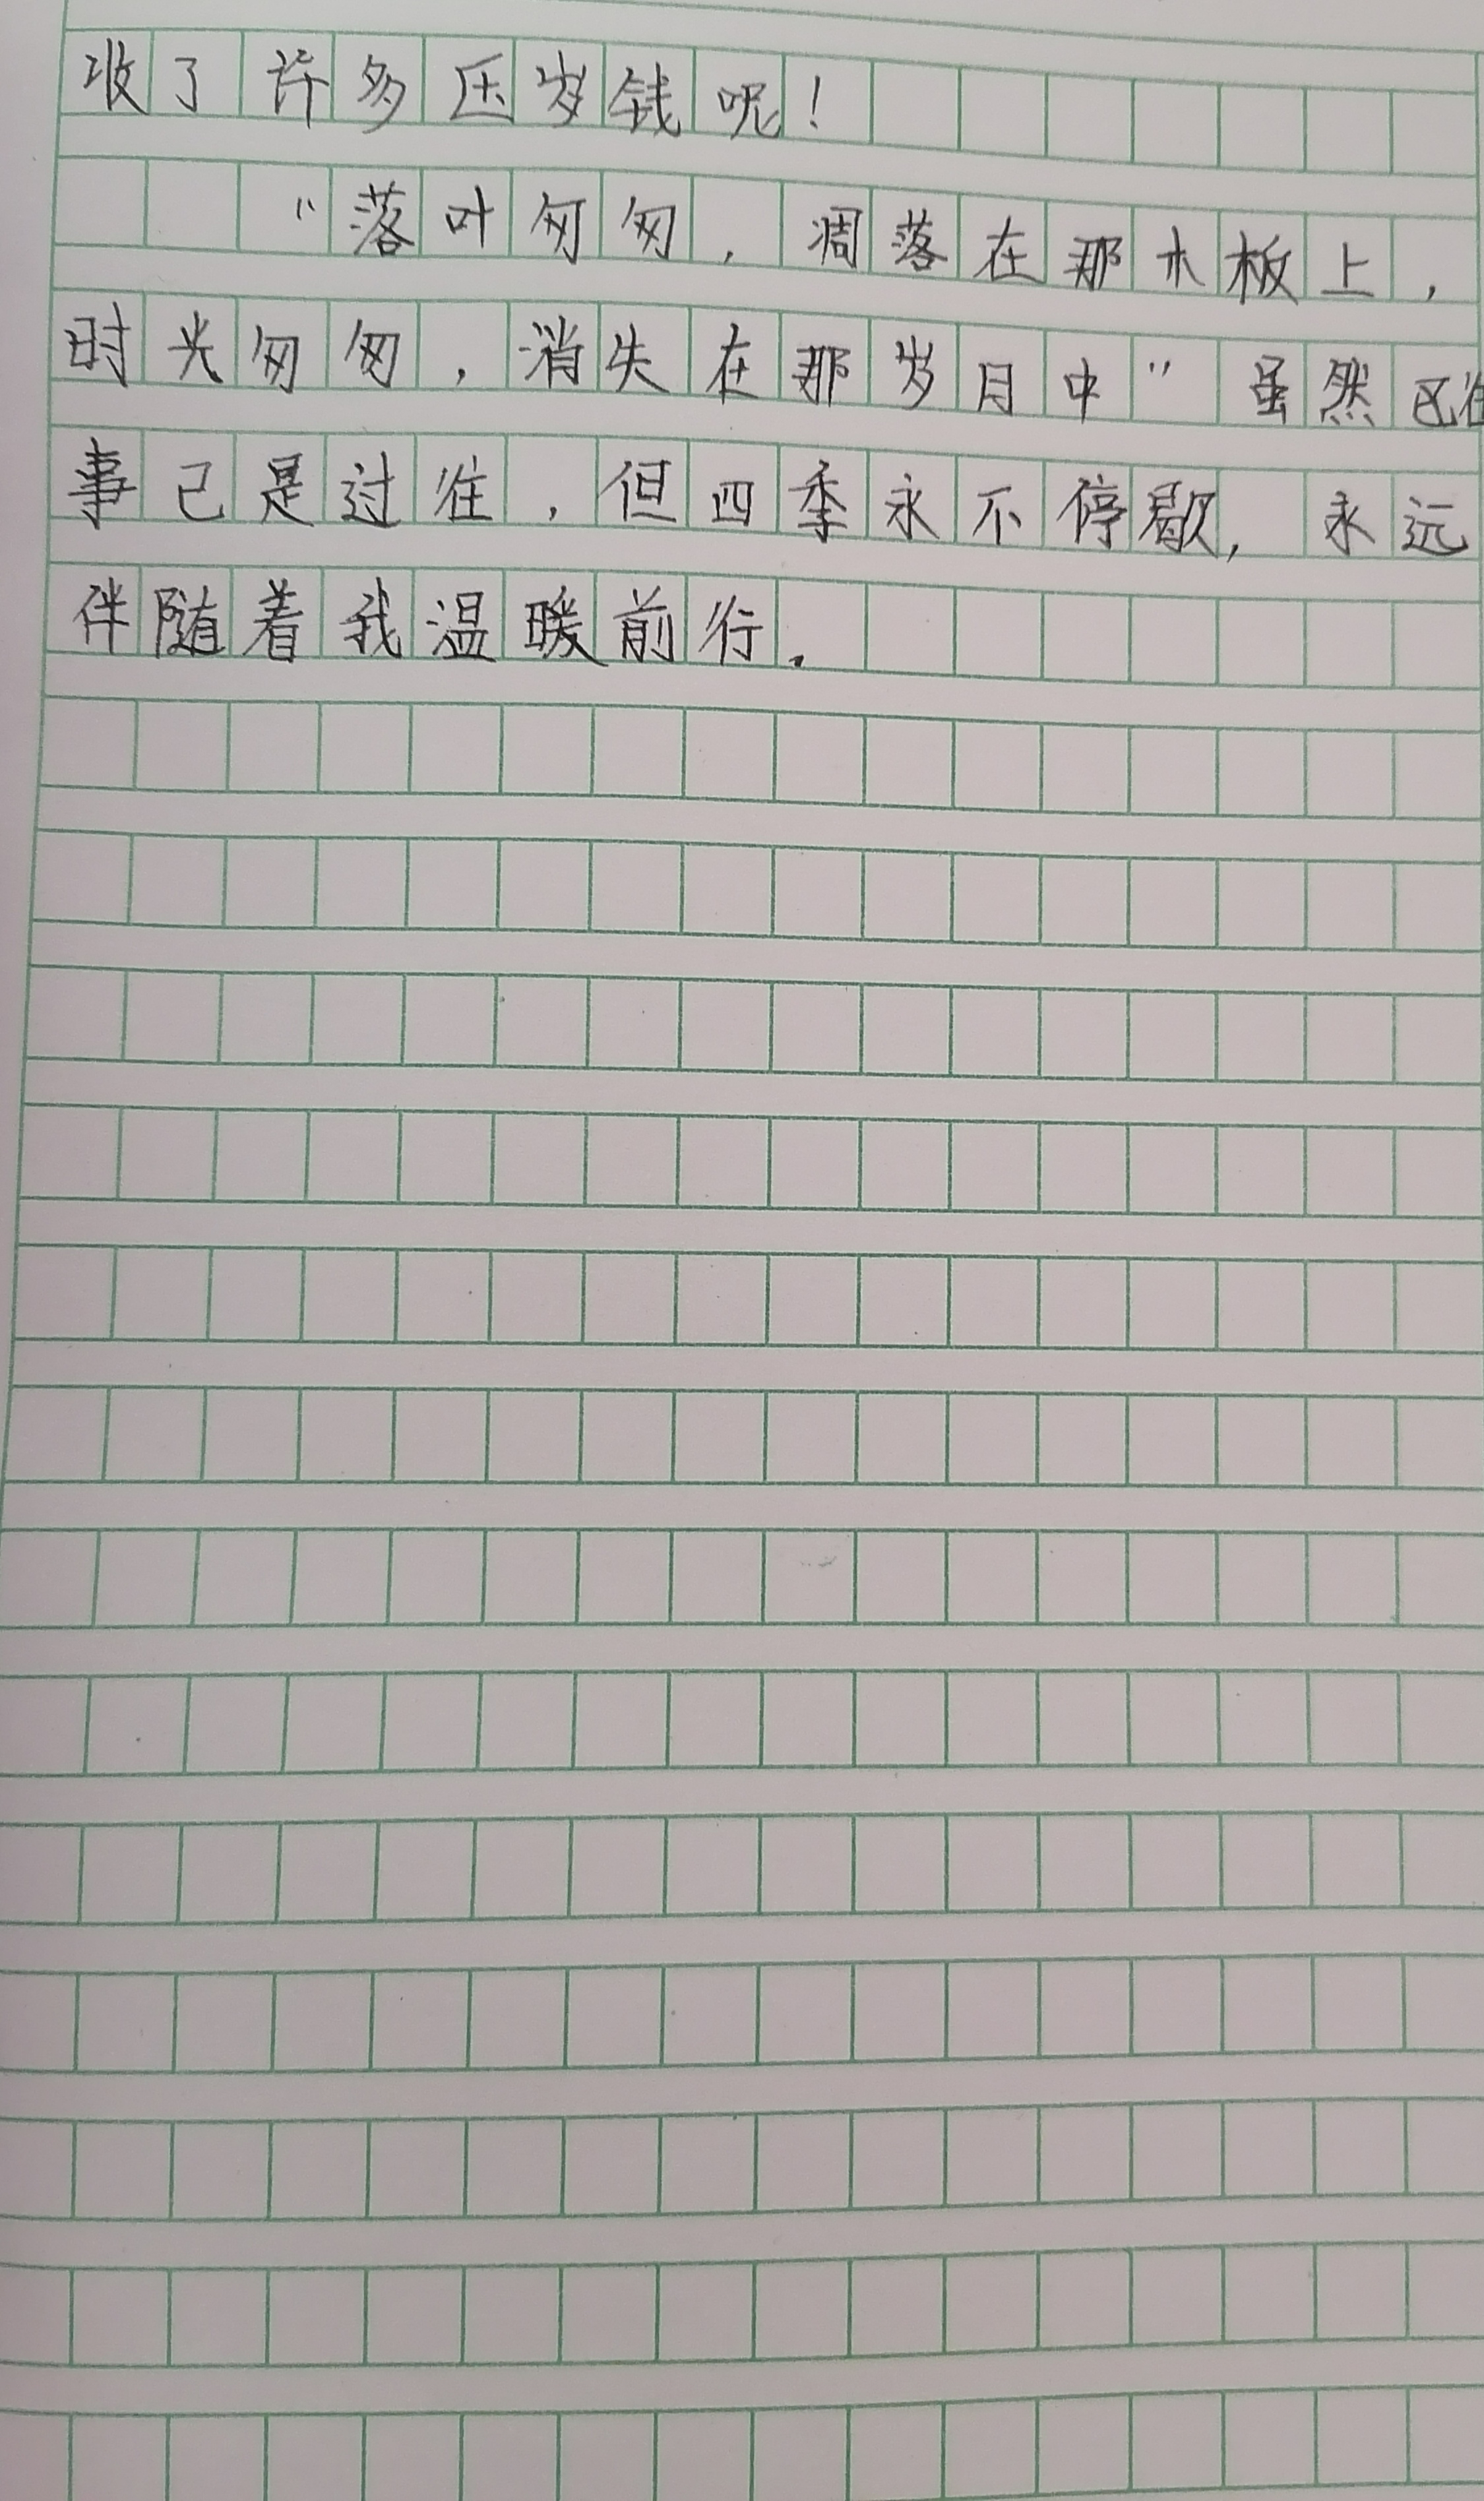 收了许多压岁钱呢！
“落叶匆匆，凋落在那木板上，
时光匆匆，消失在那岁月中”虽然已往
事已是过往，但四季永不停歇，永远
伴随着我温暖前行．